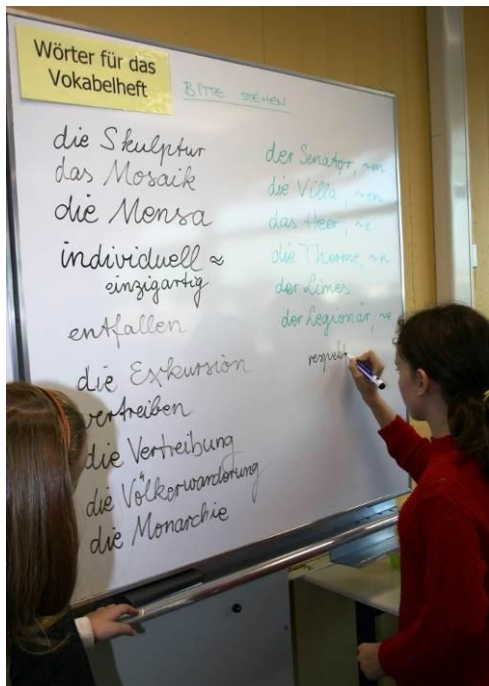 Wörter für das
Vokabelheft
BITTE STEHEN
die Skulptur
das Mosaik
die Mensa
individuell ≈
einzigartig
entfallen
die Exkursion
vertreiben
die Vertreibung
die Völkerwanderung
die Monarchie
der Senator, ~en
die Villa, ~en
das Heer, ~e
die Therme, ~n
der Limes
der Legionär, ~e
respekt